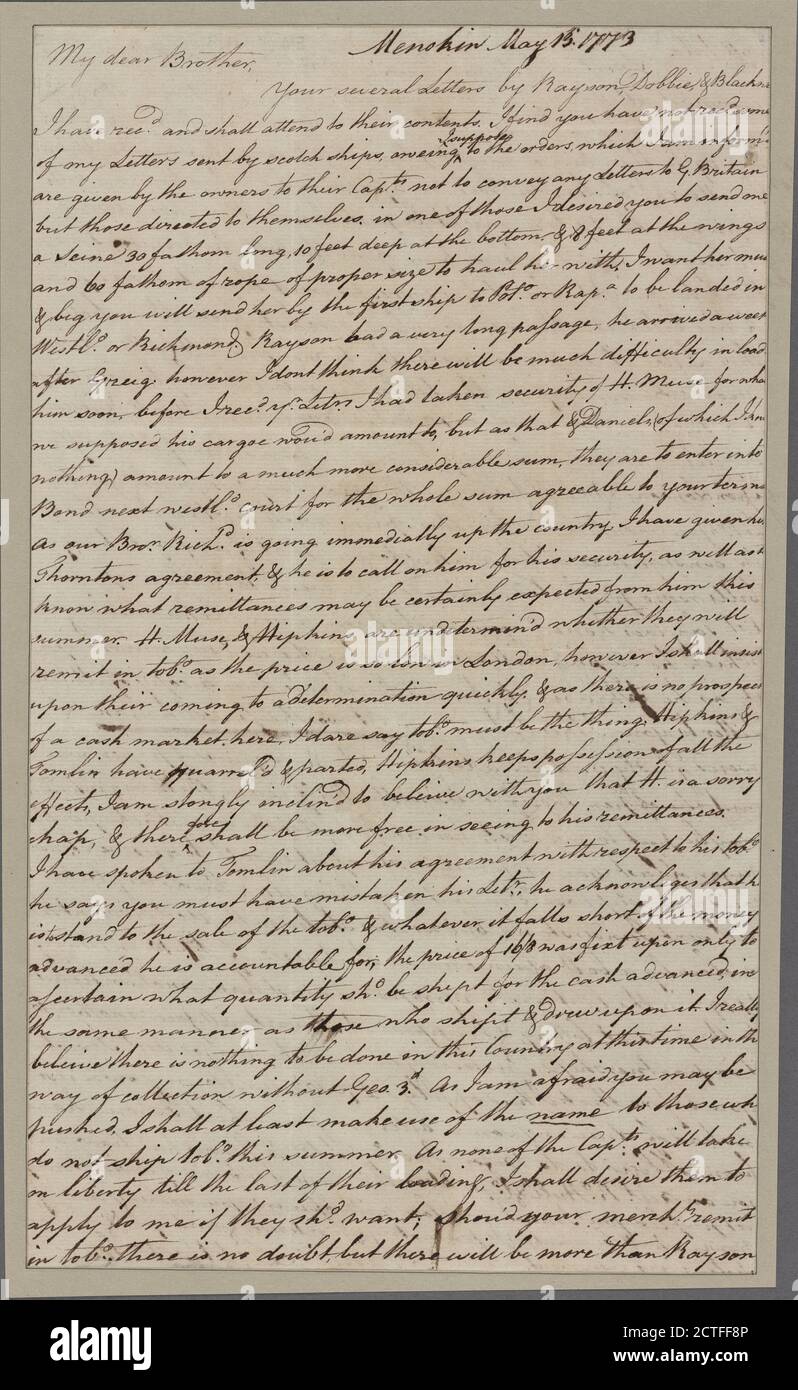 Menokin May 15. 1773
My dear Brother,
Your several Letters by Rayson, Dobbie, &
I have rec.d and shall attend to their contents. I find you have not rec.d some
of my Letters sent by scotch ships, oweing I suppose to the orders, which I am inform'd
are given by the owners to their Capts. not to convey any Letters to G. Britain
but those directed to themselves. in one of those I desired you to send me
a Seine 30 fathom long, 10 feet deep at the bottom, & 8 feet at the wings
and 60 fathom of rope of proper size to haul her with, I want her much
& beg you will send her by the first ship to Poto. or Rapa. to be landed in
Westld. or Richmond. Rayson had a very long passage, he arrived a week
after Greig, however I dont think there will be much difficulty in load
him soon, before I recd. yr. Letrs. I had taken security of H. Muse for wha
we supposed his cargoe wou'd amount to, but as that & Daniels, (of which I kn
nothing) amount to a much more considerable sum, they are to enter into
Bond next westld. court for the whole sum agreeable to your terms
As our Bror. Richd. is going immedially up the country, I have given him
Thorntons agreement, & he is to call on him for his security, as well as t
know what remittances may be certainly expected from him this
summer. H. Muse, & Hipkins are undetermin'd whether they will
remit in tobo. as the price is so low in London, however I shall insist
upon their coming to a determination quickly, & as there is no prospect
of a cash market here, I dare say tobo. must be the thing. Hipkins &
Tomlin have quarrel'd & parted, Hipkins keeps possession of all the
effects, I am stongly inclin'd to beleive with you that H. is a sorry
chap, & there fore shall be more free in seeing to his remittances.
I have spoken to Tomlin about his agreement with respect to his tobo.
he says you must have mistaken his Letr., he acknowleges that he
is to stand to the sale of the tobo. & whatever it falls short of the money
advanced he is accountable for, the price of 16/8 was fixt upon only to
ascertain what quantity shd. be shipt for the cash advanced, in
the same manner as those who shipt & drew upon it. I really
beleive there is nothing to be done in this Country at this time in th
way of collection without Geo. 3d. As I am afraid you may be
pushed, I shall at least make use of the name to those wh
do not ship tobo. this summer. As none of the Capts. will take
on liberty till the last of their loading, I shall desire them to
apply to me if they shd. want, shou'd your mercht. remit
in tobo. there is no doubt, but there will be more than Rayson
alamy
alamy
alamy
alamy
Image ID: 2CTFF8P
www.alamy.com